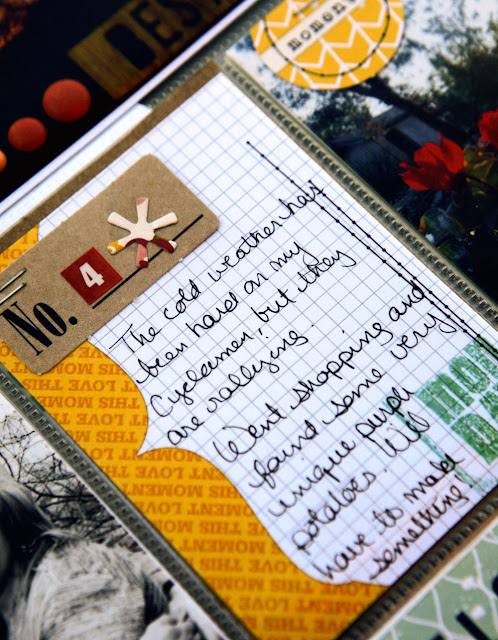 DES
moment
No. 4
The cold weather has
been hard on my
Cyclamen, but they
are rallying.
Went shopping and
found some very
unique purple
potatoes. Will
have to make
something!
THIS MOMENT
I LOVE THIS
MOMENT I LOVE
THIS MOMENT
I LOVE THIS
MOMENT I LOVE
THIS MOMENT
I LOVE THIS
MOMENT I LOVE
THIS MOMENT
I LOVE THIS MOMENT